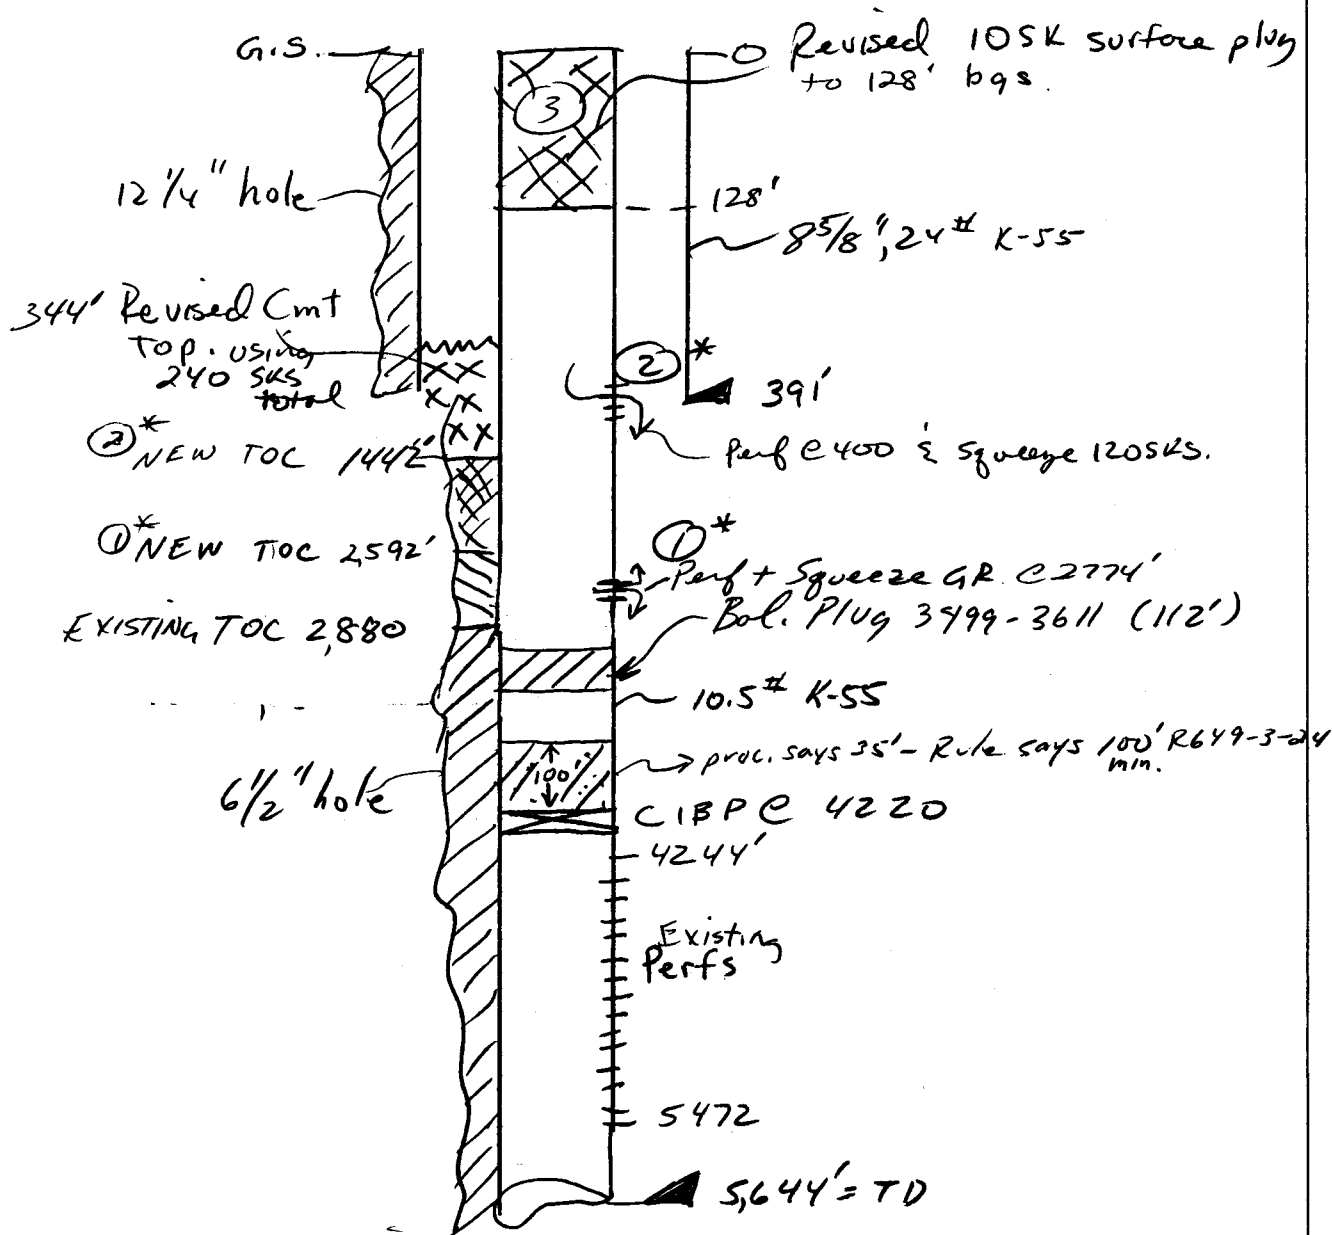 G.S.
O Revised 10SK surface plug
to 128' bgs.
3
12 1/4" hole
128'
8 5/8", 24# K-55
344' Revised Cmt
Top. using
240 SKS
total
2 *
391'
2 * NEW TOC 1442'
Perf @ 400 & Squeeze 120SKS.
1 * NEW TOC 2,592'
1 *
Perf + Squeeze GR @ 2774'
Bal. Plug 3499-3611 (112')
EXISTING TOC 2,880
10.5# K-55
proc. says 35' - Rule says 100' R649-3-24
min.
100'
6 1/2" hole
CIBP @ 4220
4244'
Existing
Perfs
5472
5,644' = TD